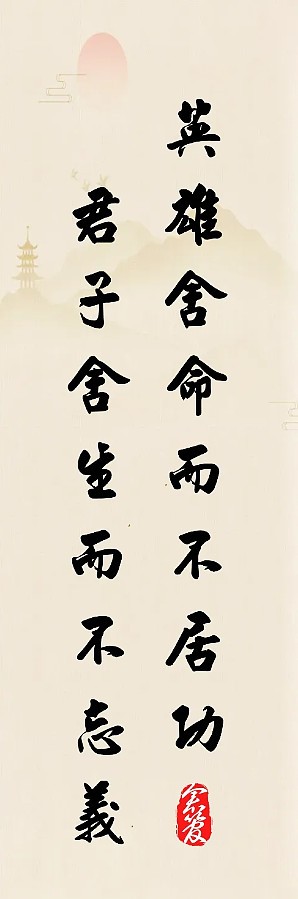 英雄舍命而不居功
君子舍生而不忘義